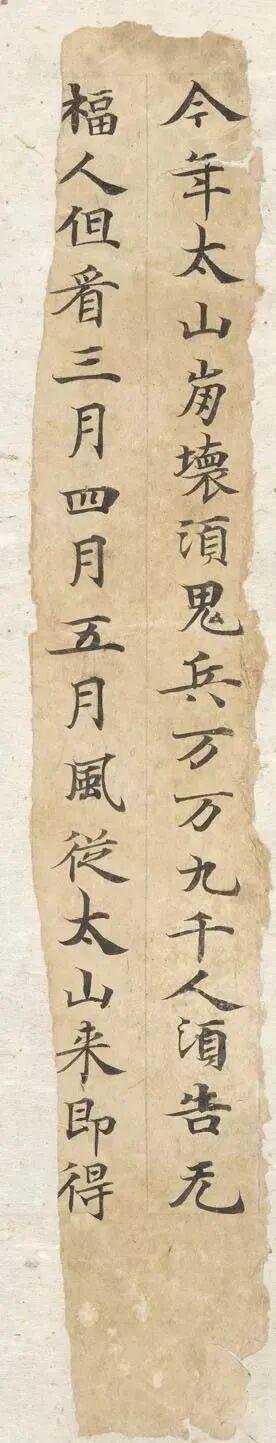 今年太山崩壞須鬼兵万万九千人須告无
福人但看三月四月五月風從太山来即得